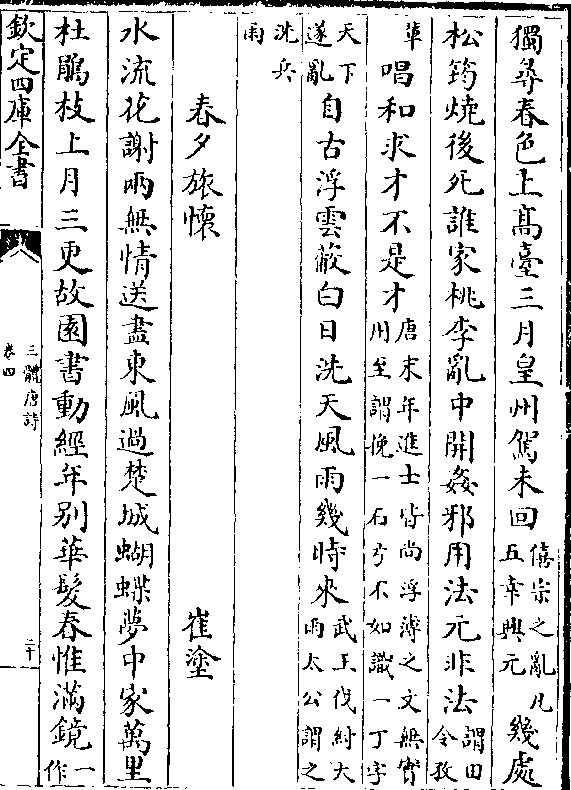 獨尋春色上髙臺三月皇州駕未回僖宗之亂凡五幸興元幾處
松筠燒後死誰家桃李亂中開姦邪用法元非法謂田令孜
輩唱和求才不是才唐末年進士皆尚浮薄之文無實州至謂挽一石弓不如識一丁字
天下遂亂自古浮雲蔽白日洗天風雨幾時來武王伐紂大雨太公謂之
洗兵雨
春夕旅懷
崔塗
水流花謝兩無情送盡東風過楚城蝴蝶夢中家萬里
杜鵑枝上月三更故園書動經年别華髮春惟滿鏡一作
欽定四庫全書
三體唐詩
卷四
二十